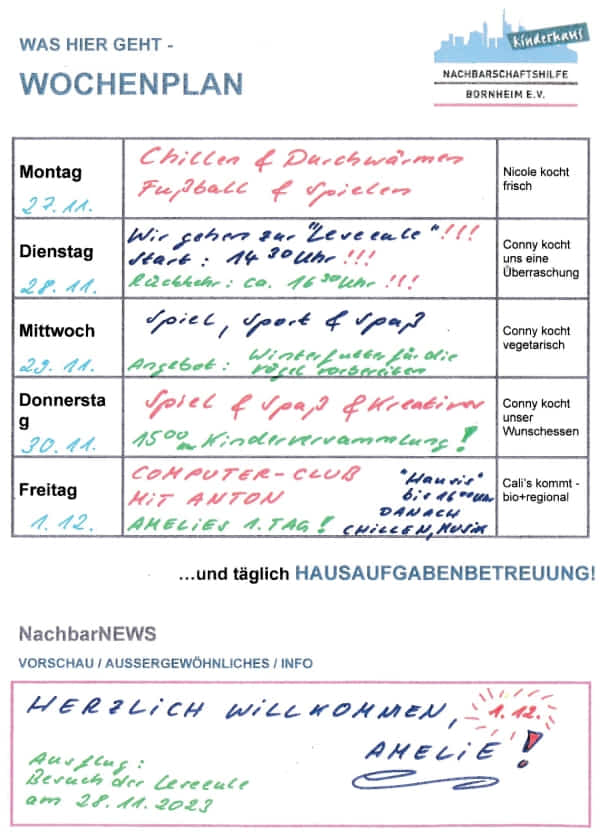 WAS HIER GEHT -
WOCHENPLAN
Kinderhaus
NACHBARSCHAFTSHILFE
BORNHEIM E.V.
Montag
27.11.
Chillen & Durchwärmen
Fußball & Spielen
Nicole kocht
frisch
Dienstag
28.11.
Wir gehen zur "Leseeule"!!!
Start: 14 30 Uhr !!!
Rückkehr: ca. 16 30 Uhr !!!
Conny kocht
uns eine
Überraschung
Mittwoch
29.11.
Spiel, Sport & Spaß
Angebot: Winterfutter für die
Vögel vorbereiten
Conny kocht
vegetarisch
Donnersta
g
30.11.
Spiel & Spaß & Kreatives
15 00 Uhr Kinderversammlung!
Conny kocht
unser
Wunschessen
Freitag
1.12.
COMPUTER-CLUB
MIT ANTON
AMELIES 1. TAG!
"Hausis"
bis 16 00 Uhr
DANACH
CHILLEN, MUSIK
Cali's kommt -
bio+regional
...und täglich HAUSAUFGABENBETREUUNG!
NachbarNEWS
VORSCHAU / AUSSERGEWÖHNLICHES / INFO
HERZLICH WILLKOMMEN,
1.12.
AMELIE!
Ausflug:
Besuch der Leseeule
am 28.11.2023